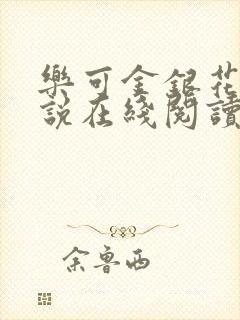 樂可金銀花
說在綫閱讀
余魯西